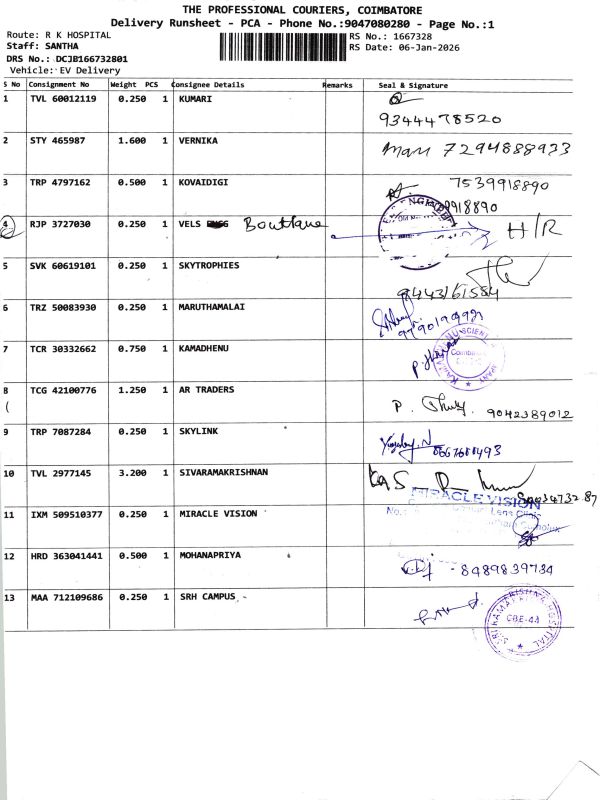 THE PROFESSIONAL COURIERS, COIMBATORE
Delivery Runsheet - PCA - Phone No.:9047080280 - Page No.:1
Route: R K HOSPITAL
RS No.: 1667328
Staff: SANTHA
RS Date: 06-Jan-2026
DRS No.: DCJB166732801
Vehicle: EV Delivery
S No Consignment No Weight PCS Consignee Details Remarks Seal & Signature
1 TVL 60012119 0.250 1 KUMARI
9344478520
2 STY 465987 1.600 1 VERNIKA 7294888933
3 TRP 4797162 0.500 1 KOVAIDIGI 7539918890
4 RJP 3727030 0.250 1 VELS H/R
5 SVK 60619101 0.250 1 SKYTROPHIES
9443161554
6 TRZ 50083930 0.250 1 MARUTHAMALAI
7 TCR 30332662 0.750 1 KAMADHENU
8 TCG 42100776 1.250 1 AR TRADERS
P. 9042389012
9 TRP 7087284 0.250 1 SKYLINK
10 TVL 2977145 3.200 1 SIVARAMAKRISHNAN
MIRACLE VISION
11 IXM 509510377 0.250 1 MIRACLE VISION
Lens Clinic
12 HRD 363041441 0.500 1 MOHANAPRIYA
8489839734
13 MAA 712109686 0.250 1 SRH CAMPUS
CBE-44